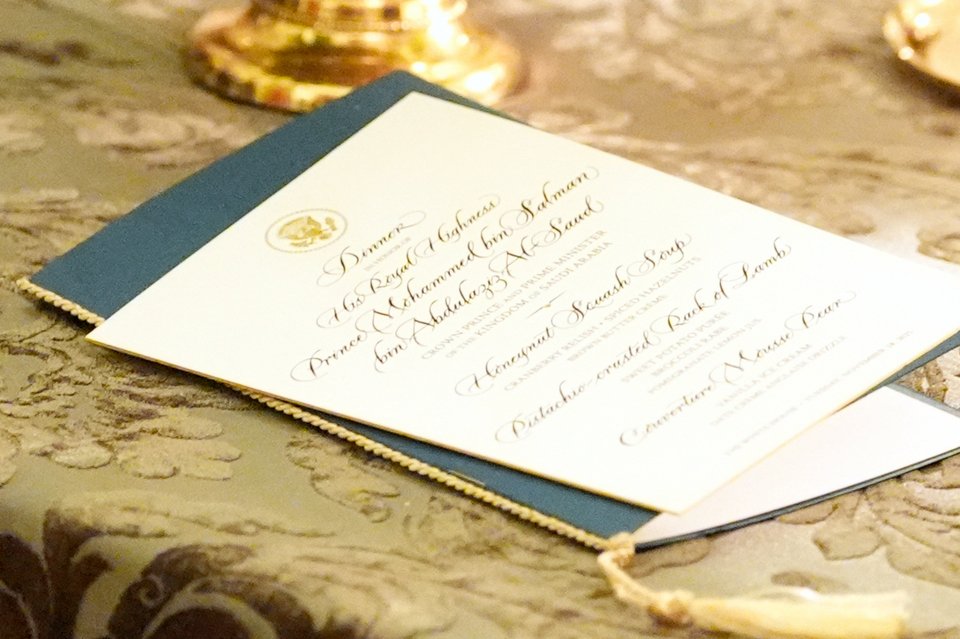 Dinner
IN HONOR OF
His Royal Highness
Prince Mohammed bin Salman
bin Abdulaziz Al Saud
CROWN PRINCE AND PRIME MINISTER
OF THE KINGDOM OF SAUDI ARABIA
Honeynut Squash Soup
CRANBERRY RELISH, SPICED HAZELNUTS
BROWN BUTTER CRÈME
Pistachio-crusted Rack of Lamb
SWEET POTATO PURÉE
BROCCOLI RABE
POMEGRANATE LEMON JUS
Couverture Mousse Pear
VANILLA ICE CREAM
DATE CRÈME ANGLAISE DRIZZLE
THE WHITE HOUSE TUESDAY, NOVEMBER 18, 2025